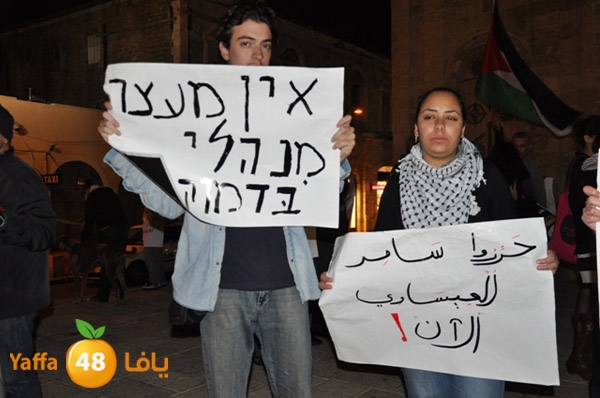 אין מעצר
מנהלי
בדמוק
حرروا سامر
العيساوي
الآن!
TAXI
Yaffa 48 يافا